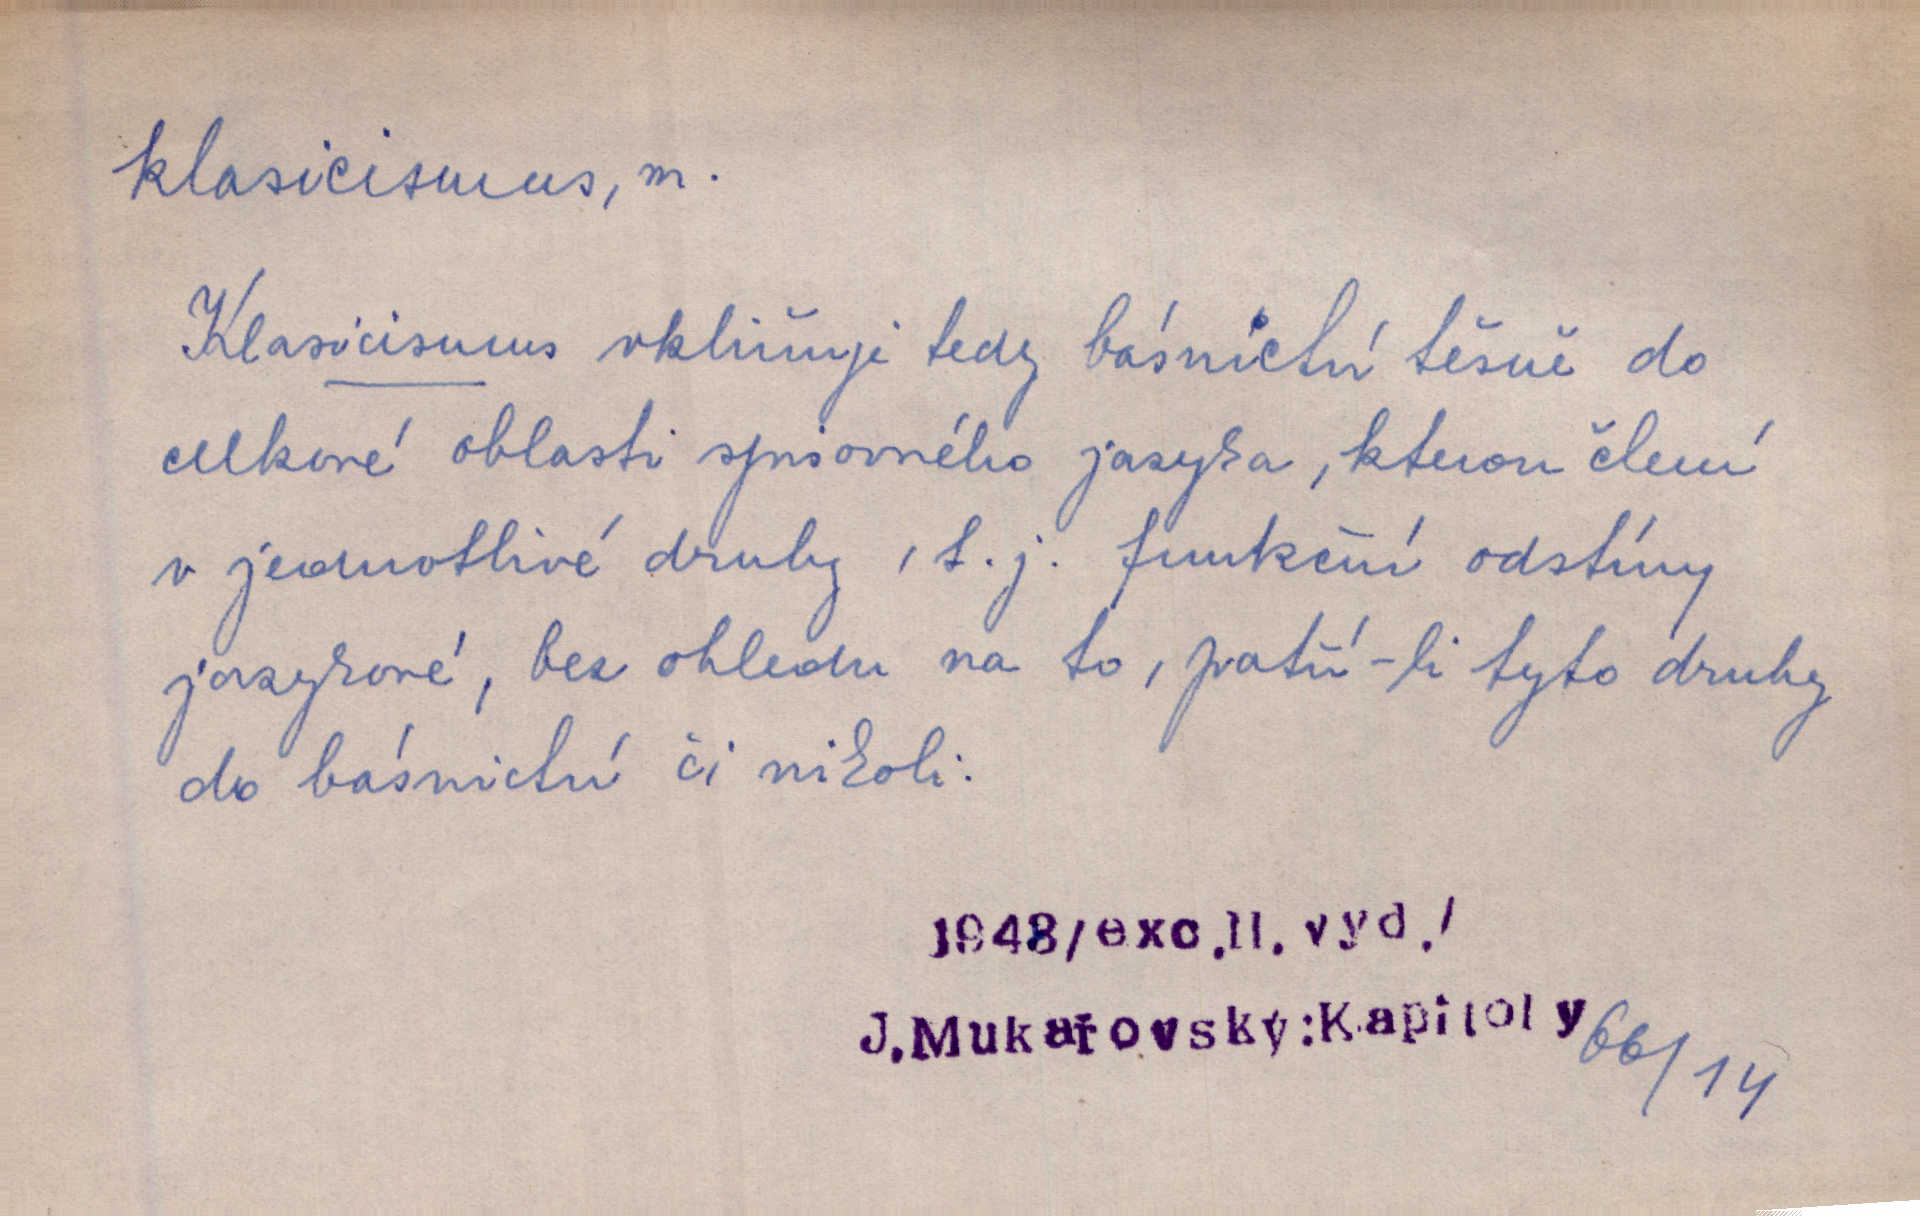 klasicismus, m.
Klasicismus vkliňuje tedy básnictví těsně do
celkové oblasti spisovného jazyka, kterou člení
v jednotlivé druhy, t. j. funkční odstíny
jazykové, bez ohledu na to, patří-li tyto druhy
do básnictví či nikoli.
1948/exc.II. vyd./
J.Mukařovský:Kapitoly 66/14